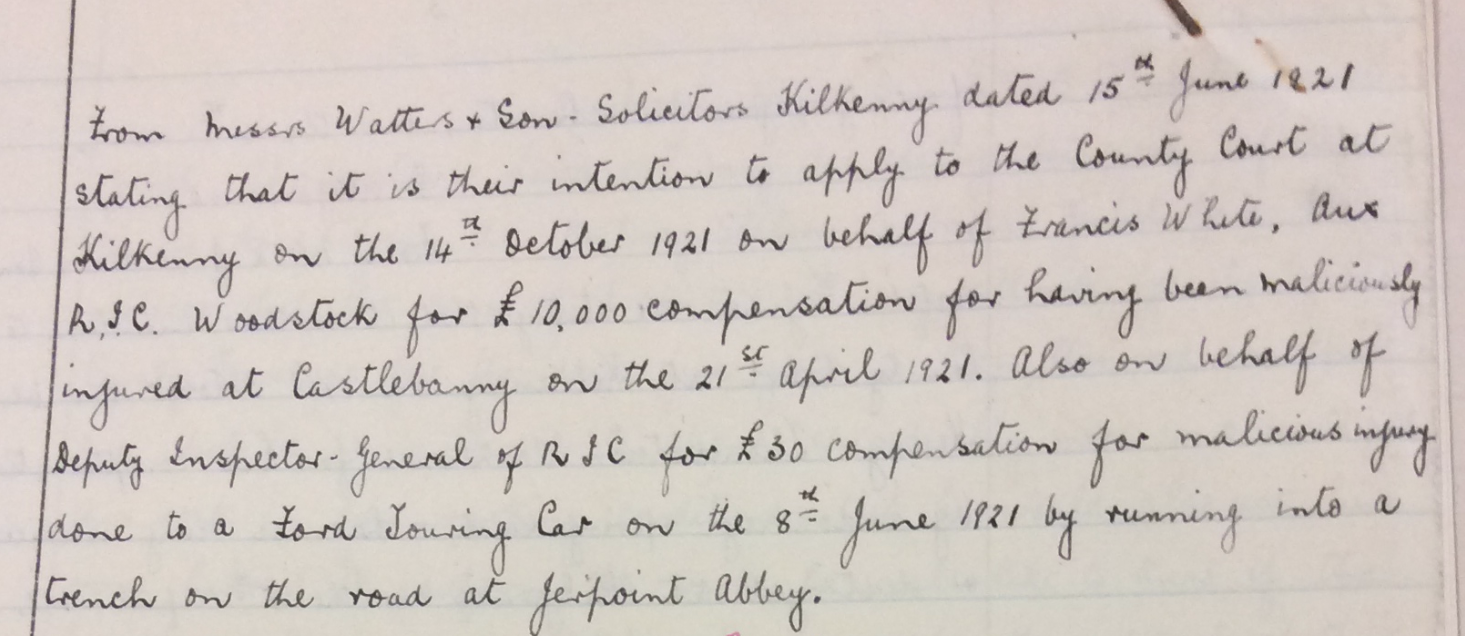 From Messrs Watters & Son - Solicitors Kilkenny dated 15th June 1921
stating that it is their intention to apply to the County Court at
Kilkenny on the 14th October 1921 on behalf of Francis White, Aux
R.I.C. Woodstock for £10,000 compensation for having been maliciously
injured at Castlebanny on the 21st April 1921. Also on behalf of
Deputy Inspector-General of R I C for £30 compensation for malicious injury
done to a Ford Touring Car on the 8th June 1921 by running into a
trench on the road at Jerpoint Abbey.